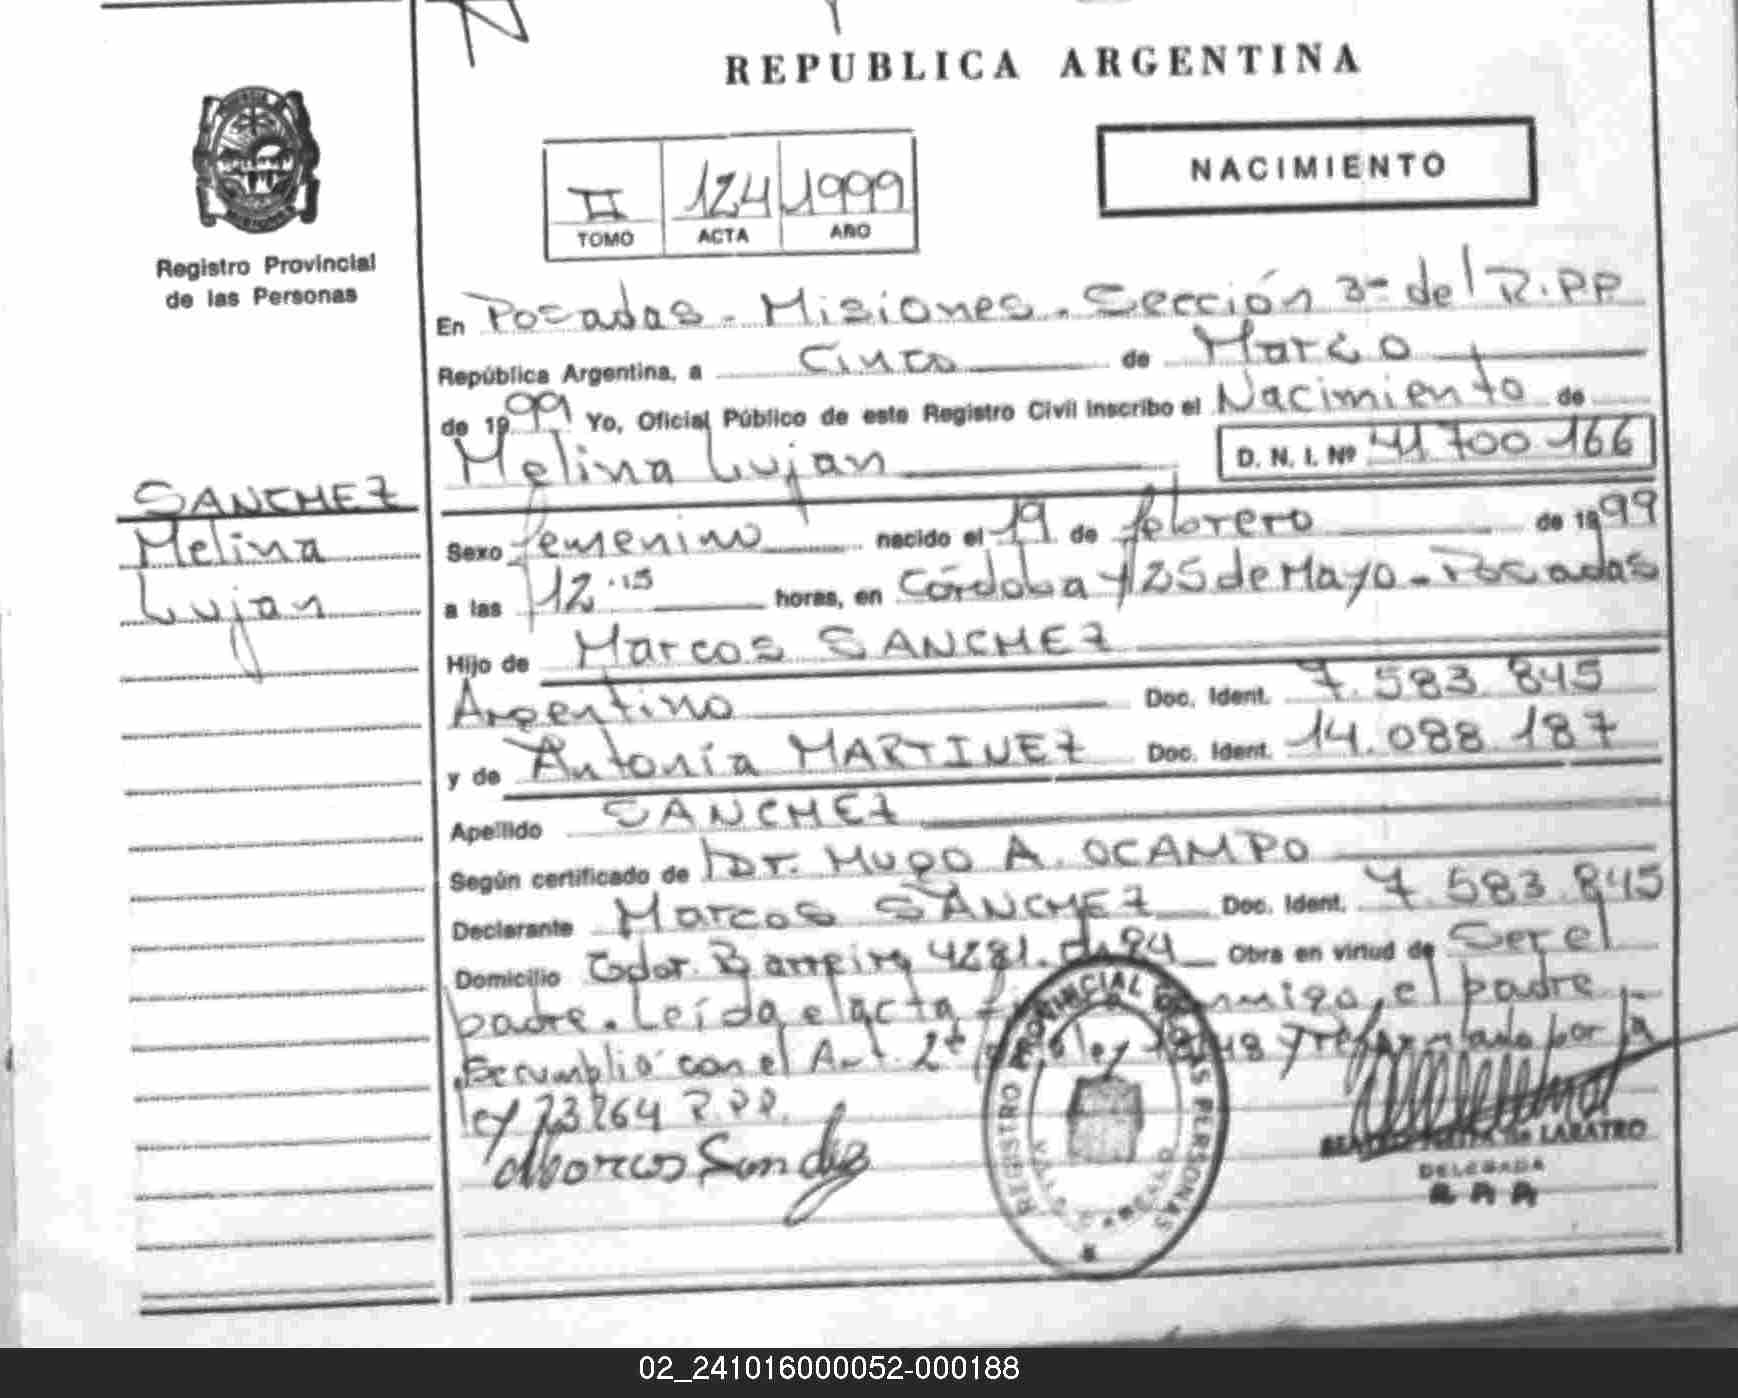 REPUBLICA ARGENTINA
NACIMIENTO
II 124 1999
TOMO ACTA AÑO
Registro Provincial
de las Personas
En Posadas - Misiones. Sección 3ª del R.P.P
República Argentina, a Cinco de Marzo
de 1999 Yo, Oficial Público de este Registro Civil inscribo el Nacimiento de
Melina Lujan D. N. I. Nº 41 700 166
SANCHEZ
Melina
Lujan
Sexo femenino nacido el 19 de febrero de 1999
a las 12.15 horas, en Córdoba y 25 de Mayo - Posadas
Hijo de Marcos SANCHEZ
Argentino Doc. Ident. 7.583 845
y de Antonia MARTINEZ Doc. Ident. 14.088.187
Apellido SANCHEZ
Según certificado de Dr. HUGO A. OCAMPO
Declarante Marcos SANCHEZ Doc. Ident. 7.583.845
Domicilio Barreiro 4281. Obra en virtud de Ser el
padre. Leída el acta el padre
Se cumplió con el Art. 2º ley y reformado por la
ley 23264 R.P.P.
Marcos Sanchez
REGISTRO PROVINCIAL DE LAS PERSONAS
de LABATRO
DELEGADA
02_241016000052-000188